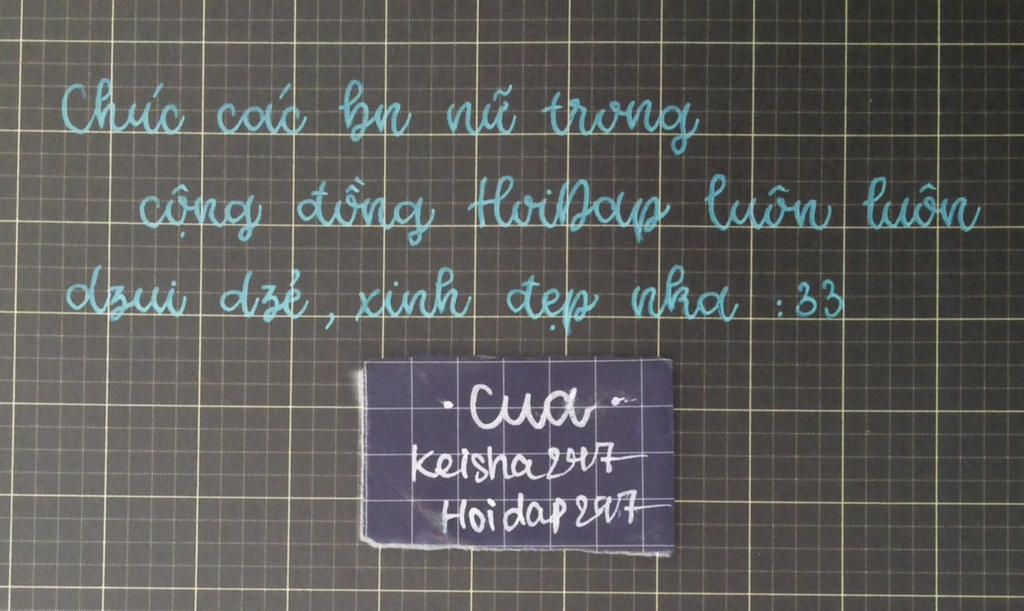 Chúc các bn nữ trong
cộng đồng HoiDap luôn luôn
dzui dzẻ, xinh đẹp nka :33
• Cua •
Keisha247
Hoidap247